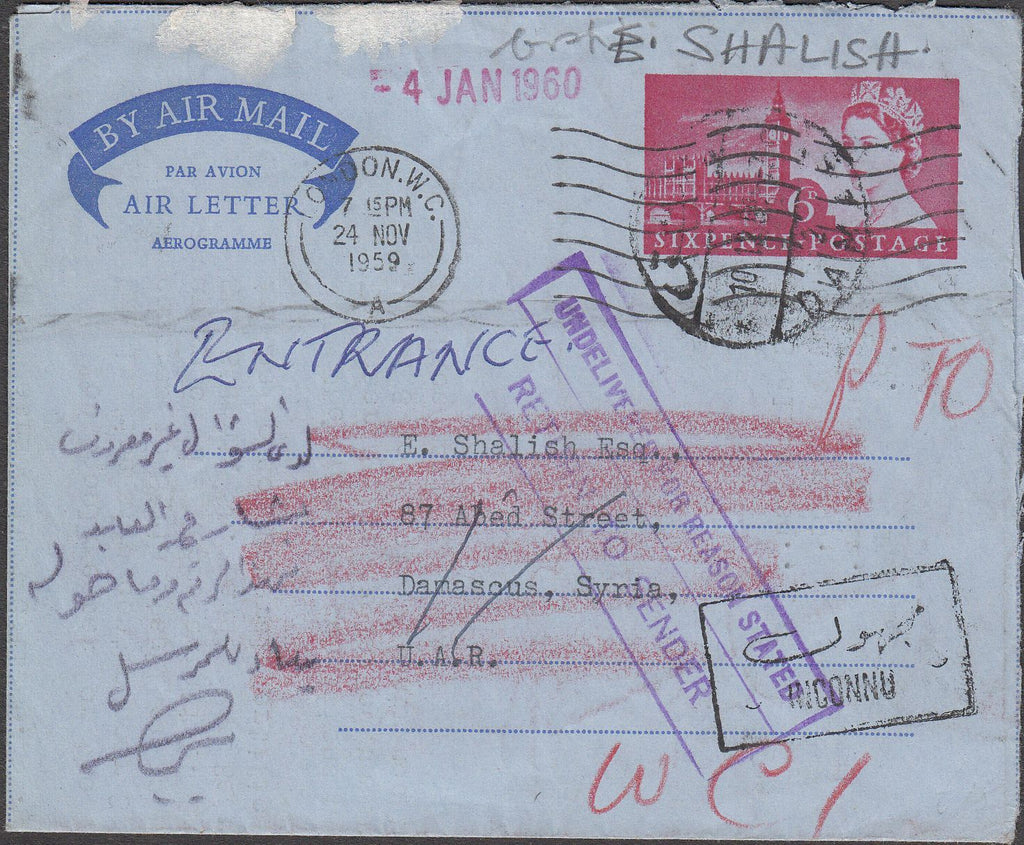 E. SHALISH.
- 4 JAN 1960
BY AIR MAIL
PAR AVION
AIR LETTER
AEROGRAMME
LONDON.W.C.
7 15PM
24 NOV
1959
A
6D
SIXPENCE POSTAGE
ENTRANCE.
P TO
UNDELIVERED FOR REASON STATED
RETURN TO SENDER
لدى السؤال غير معروف
E. Shalish Esq.,
87 Abed Street,
بهذا الرقم وما حوله
Damascus, Syria,
يعاد للمرسل
U.A.R.
مجهول
INCONNU
W C 1